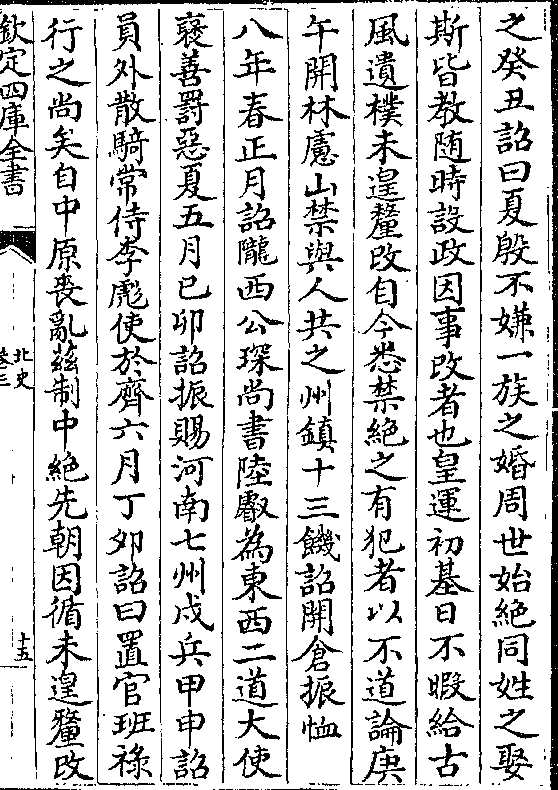 之癸丑詔曰夏殷不嫌一族之婚周世始絶同姓之娶
斯皆教随時設政因事改者也皇運初基日不暇給古
風遺樸未遑釐改自今悉禁絶之有犯者以不道論庚
午開林慮山禁與人共之州鎮十三饑詔開倉振恤
八年春正月詔隴西公琛尚書陸叡為東西二道大使
襃善罰惡夏五月已卯詔振賜河南七州戍兵甲申詔
員外散騎常侍李彪使於齊六月丁卯詔曰置官班禄
行之尚矣自中原喪亂兹制中絶先朝因循未遑釐改
欽定四庫全書
北史
卷三
十五